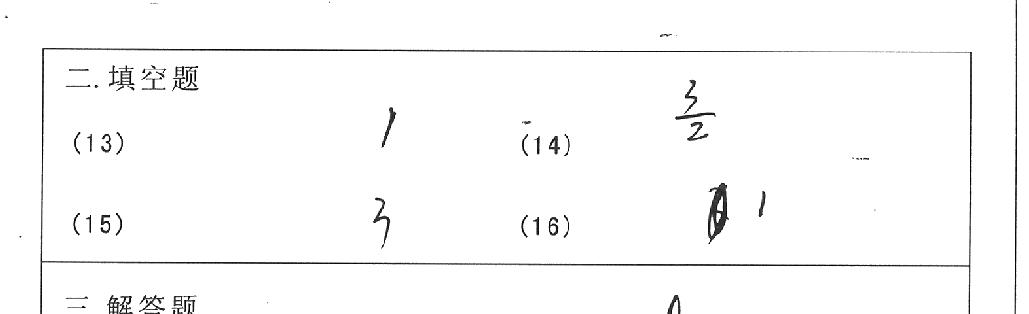 二.填空题
(13) 1 (14) 3/2
(15) 3 (16) 1
三.解答题